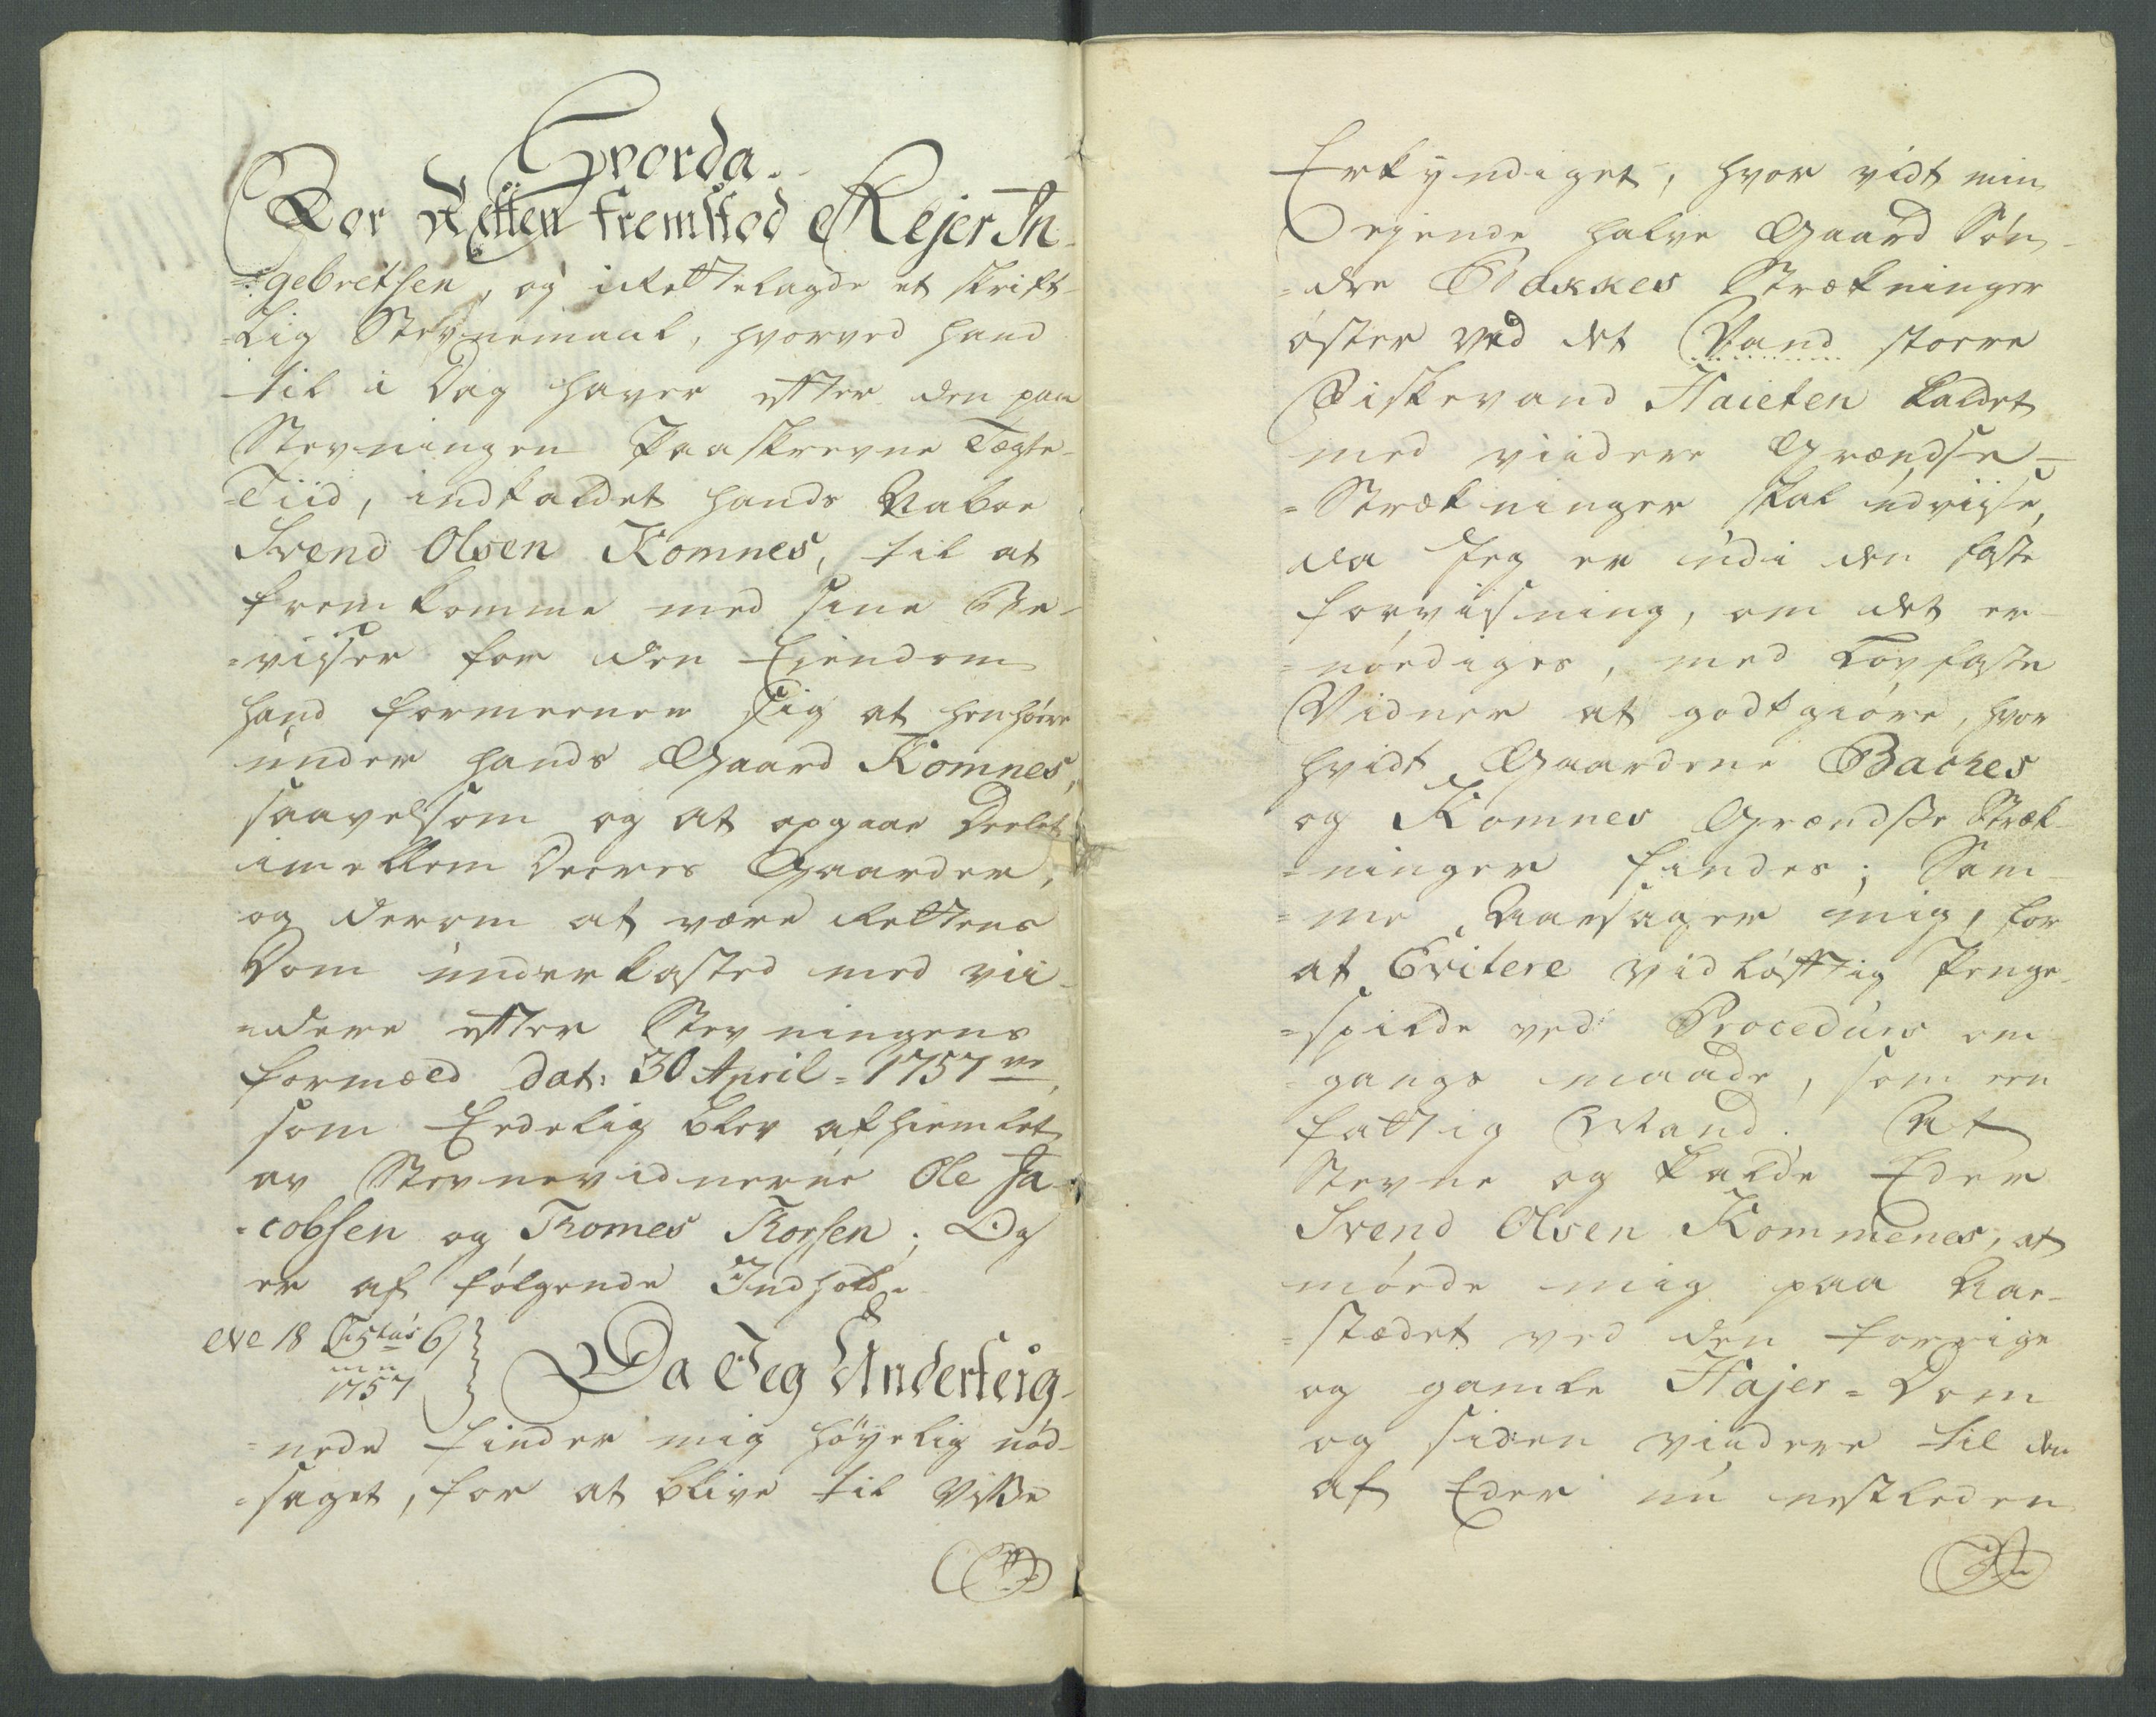 Hvorda.
For Retten fremstod Rejer In-
=gebretsen, og i Rettelagde et skrift-
=lig Stevnemaal, hvorved hand
til i Dag haver efter den paa
Stevningen Paaskrevne Tægte-
=Tiid, indkaldet hands Naboe
Svend Olsen Komnes, til at
fremkomme med sine Be-
=viiser for den Eiendom
hand formeener sig at henhöre
under hands Gaard Komnes,
saavelsom og at opgaae Deelet
imellem Deeres Gaarder,
og derom at være Rettens
Dom underkasted med vii-
=dere efter Stevningens
formæld dat: 30 April = 1757 ve,
som Eedelig blev afhiemlet
av Stevnevidnerne Ole Ja-
=cobsen og Thomes Thorsen; Og
er af fölgende Indhold.
No 18 6
1757
Da Jeg Underteig-
=nede finder mig höyelig nöd-
=saget, for at blive til Visse
Erkyndiget, hvor vidt min
Eejende halve Gaard Sön-
=dre Bakkes Strækninger
öster ved det Vand stoere
Fiskevand Haieten kaldet
med viidere Grændse-
=Strækninger skal udviise,
da Jeg er udi den faste
forvisning, om det er-
=nördiges, med Lovfaste
Vidner at godtgiöre, hvor
hvidt Gaardene Backes
og Komnes Grændsse Stræk-
=ninger findes; Sam-
=me Aarsager mig, for
at Evitere vidlöfftig Penge-
=spilde ved Procedurs om-
=gangs maade, som een
fattig Mand. At
Stevne og kalde Eder
Svend Olsen Kommenes, at
möede mig paa Aae-
=stædet ved den forrige
og gamle Hajer = Dom
og siden viidere til den
af Eder nu nestleden